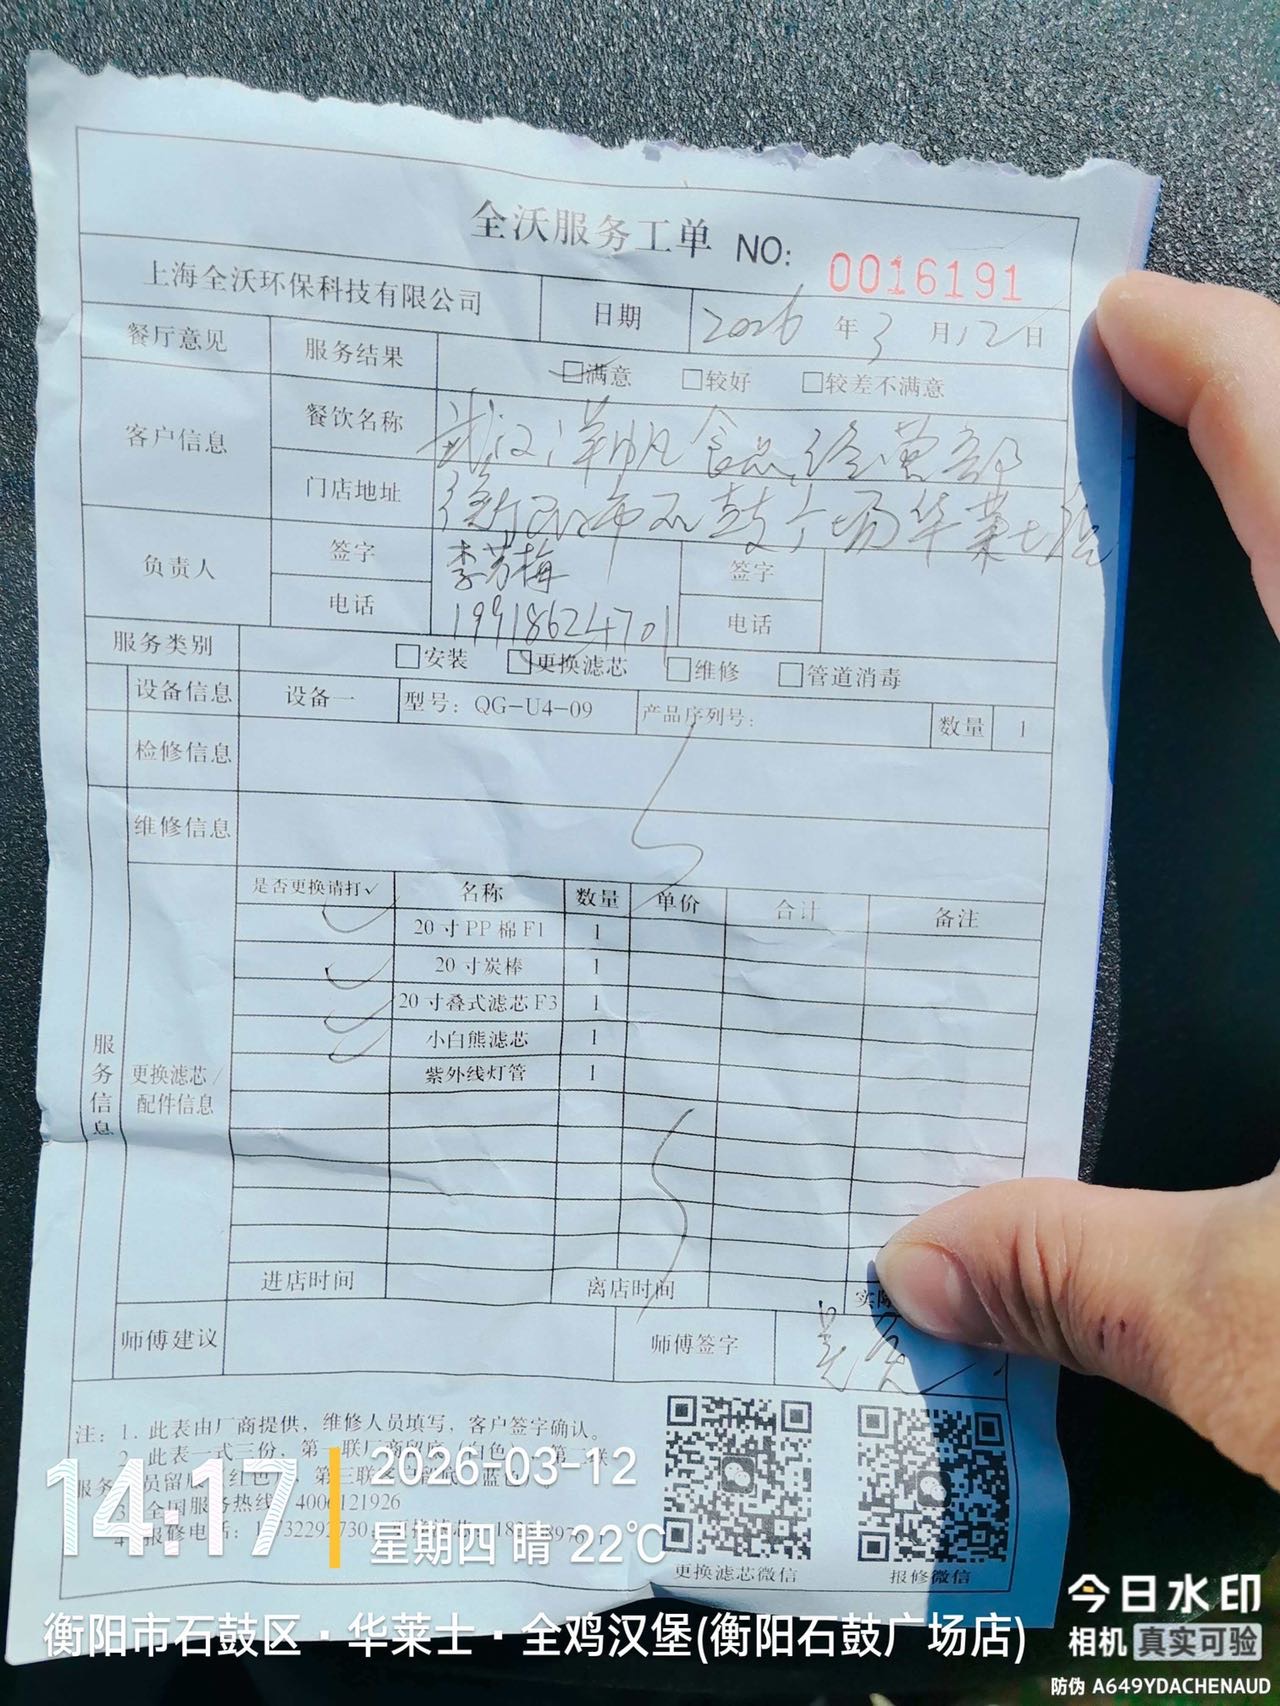 全沃服务工单 NO: 0016191
上海全沃环保科技有限公司 日期 2026年3月12日
餐厅意见 服务结果 □满意 □较好 □较差不满意
客户信息 餐饮名称 武汉洋帆食品经营部
门店地址 衡阳市石鼓广场华莱士店
负责人 签字 李芳梅 签字
电话 19918624701 电话
服务类别 □安装 □更换滤芯 □维修 □管道消毒
设备信息 设备一 型号: QG-U4-09 产品序列号: 数量 1
检修信息
维修信息
服务信息
更换滤芯/配件信息
是否更换请打✓ 名称 数量 单价 合计 备注
✓ 20寸PP棉F1 1
✓ 20寸炭棒 1
✓ 20寸叠式滤芯F3 1
✓ 小白熊滤芯 1
紫外线灯管 1
进店时间 离店时间
师傅建议 师傅签字
注: 1. 此表由厂商提供，维修人员填写，客户签字确认。
2. 此表一式三份，第一联厂商留底（白色），第二联
服务人员留底（红色），第三联
3. 全国服务热线: 4006121926
4. 报修电话:
更换滤芯微信 报修微信
14:17 2026-03-12
星期四 晴 22℃
衡阳市石鼓区·华莱士·全鸡汉堡(衡阳石鼓广场店)
今日水印
相机 真实可验
防伪 A649YDACHENAUD